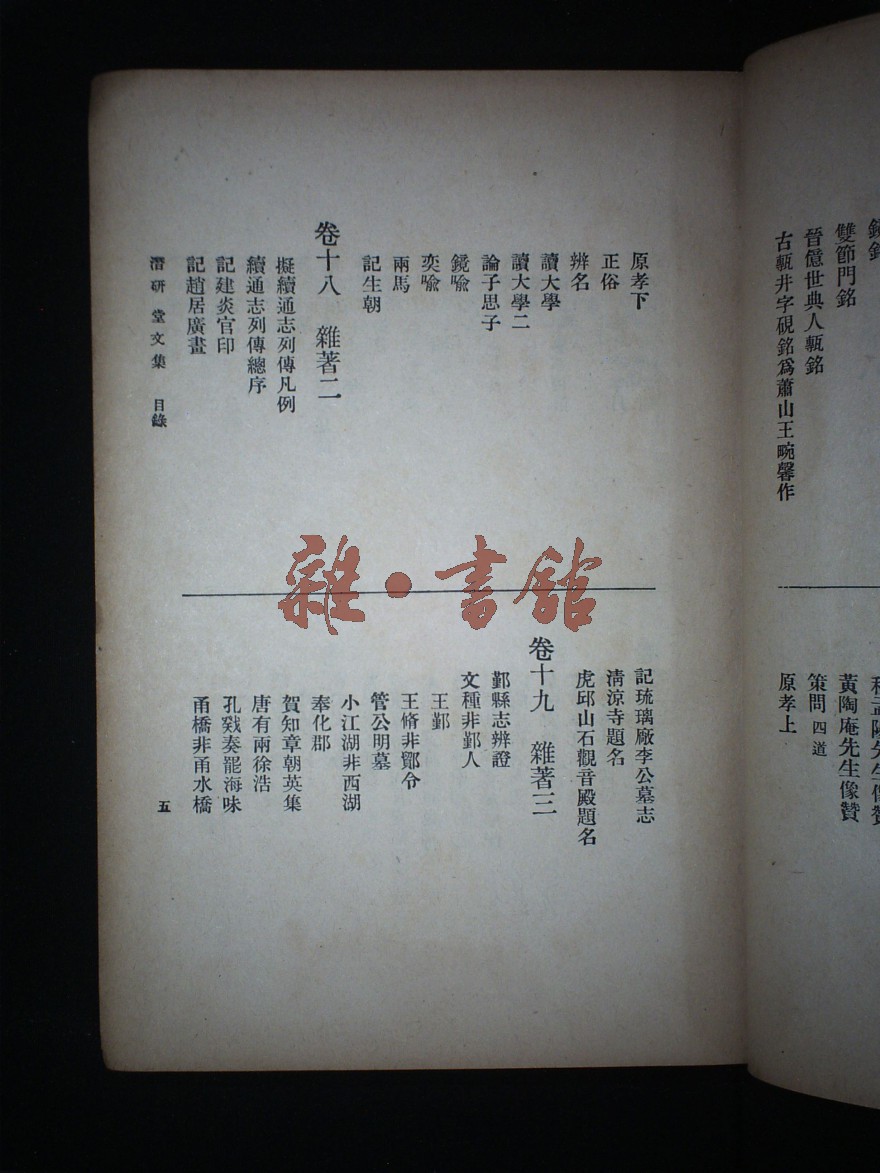 雙節門銘
晉億世典人甎銘
古甎井字硯銘爲蕭山王畹馨作
黃陶庵先生像贊
策問 四道
原孝上
原孝下
正俗
辨名
讀大學
讀大學二
論子思子
鏡喩
奕喩
兩馬
記生朝
卷十八　雜著二
擬續通志列傳凡例
續通志列傳總序
記建炎官印
記趙居廣畫
記琉璃廠李公墓志
淸涼寺題名
虎邱山石觀音殿題名
卷十九　雜著三
鄞縣志辨證
文種非鄞人
王鄞
王脩非鄮令
管公明墓
小江湖非西湖
奉化郡
賀知章朝英集
唐有兩徐浩
孔戣奏罷海味
甬橋非甬水橋
潛研堂文集　目錄
五
雜·書館